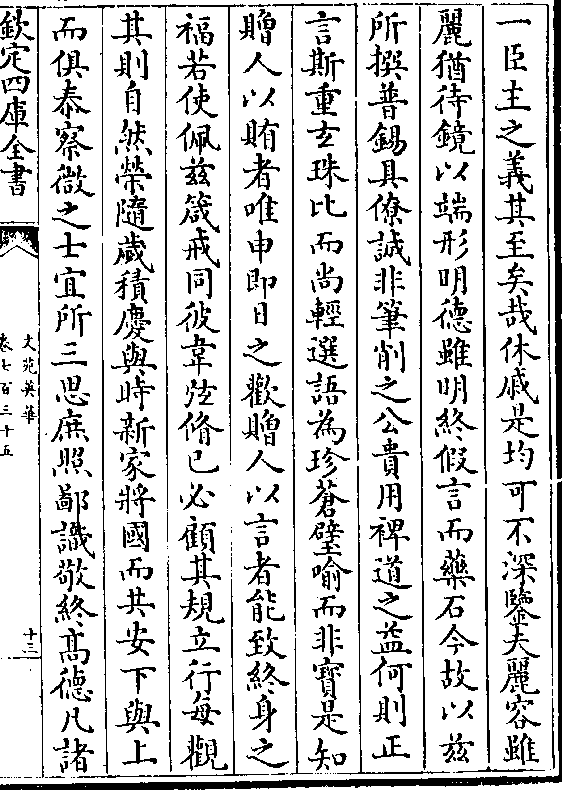 一臣主之義其至矣哉休戚是均可不深鑒夫麗容雖
麗猶待鏡以端形明德雖明終假言而藥石今故以兹
所撰普錫具僚誠非筆削之公貴用裨道之益何則正
言斯重𤣥珠比而尚輕選語為珍蒼璧喻而非寳是知
贈人以賄者唯申即日之歡贈人以言者能致終身之
福若使佩兹箴戒同彼韋弦脩已必顧其規立行每觀
其則自然榮隨歲積慶與時新家將國而共安下與上
而俱泰察微之士宜所三思庶照鄙識敬終髙德凡諸
欽定四庫全書
文苑英華
卷七百三十五
十三